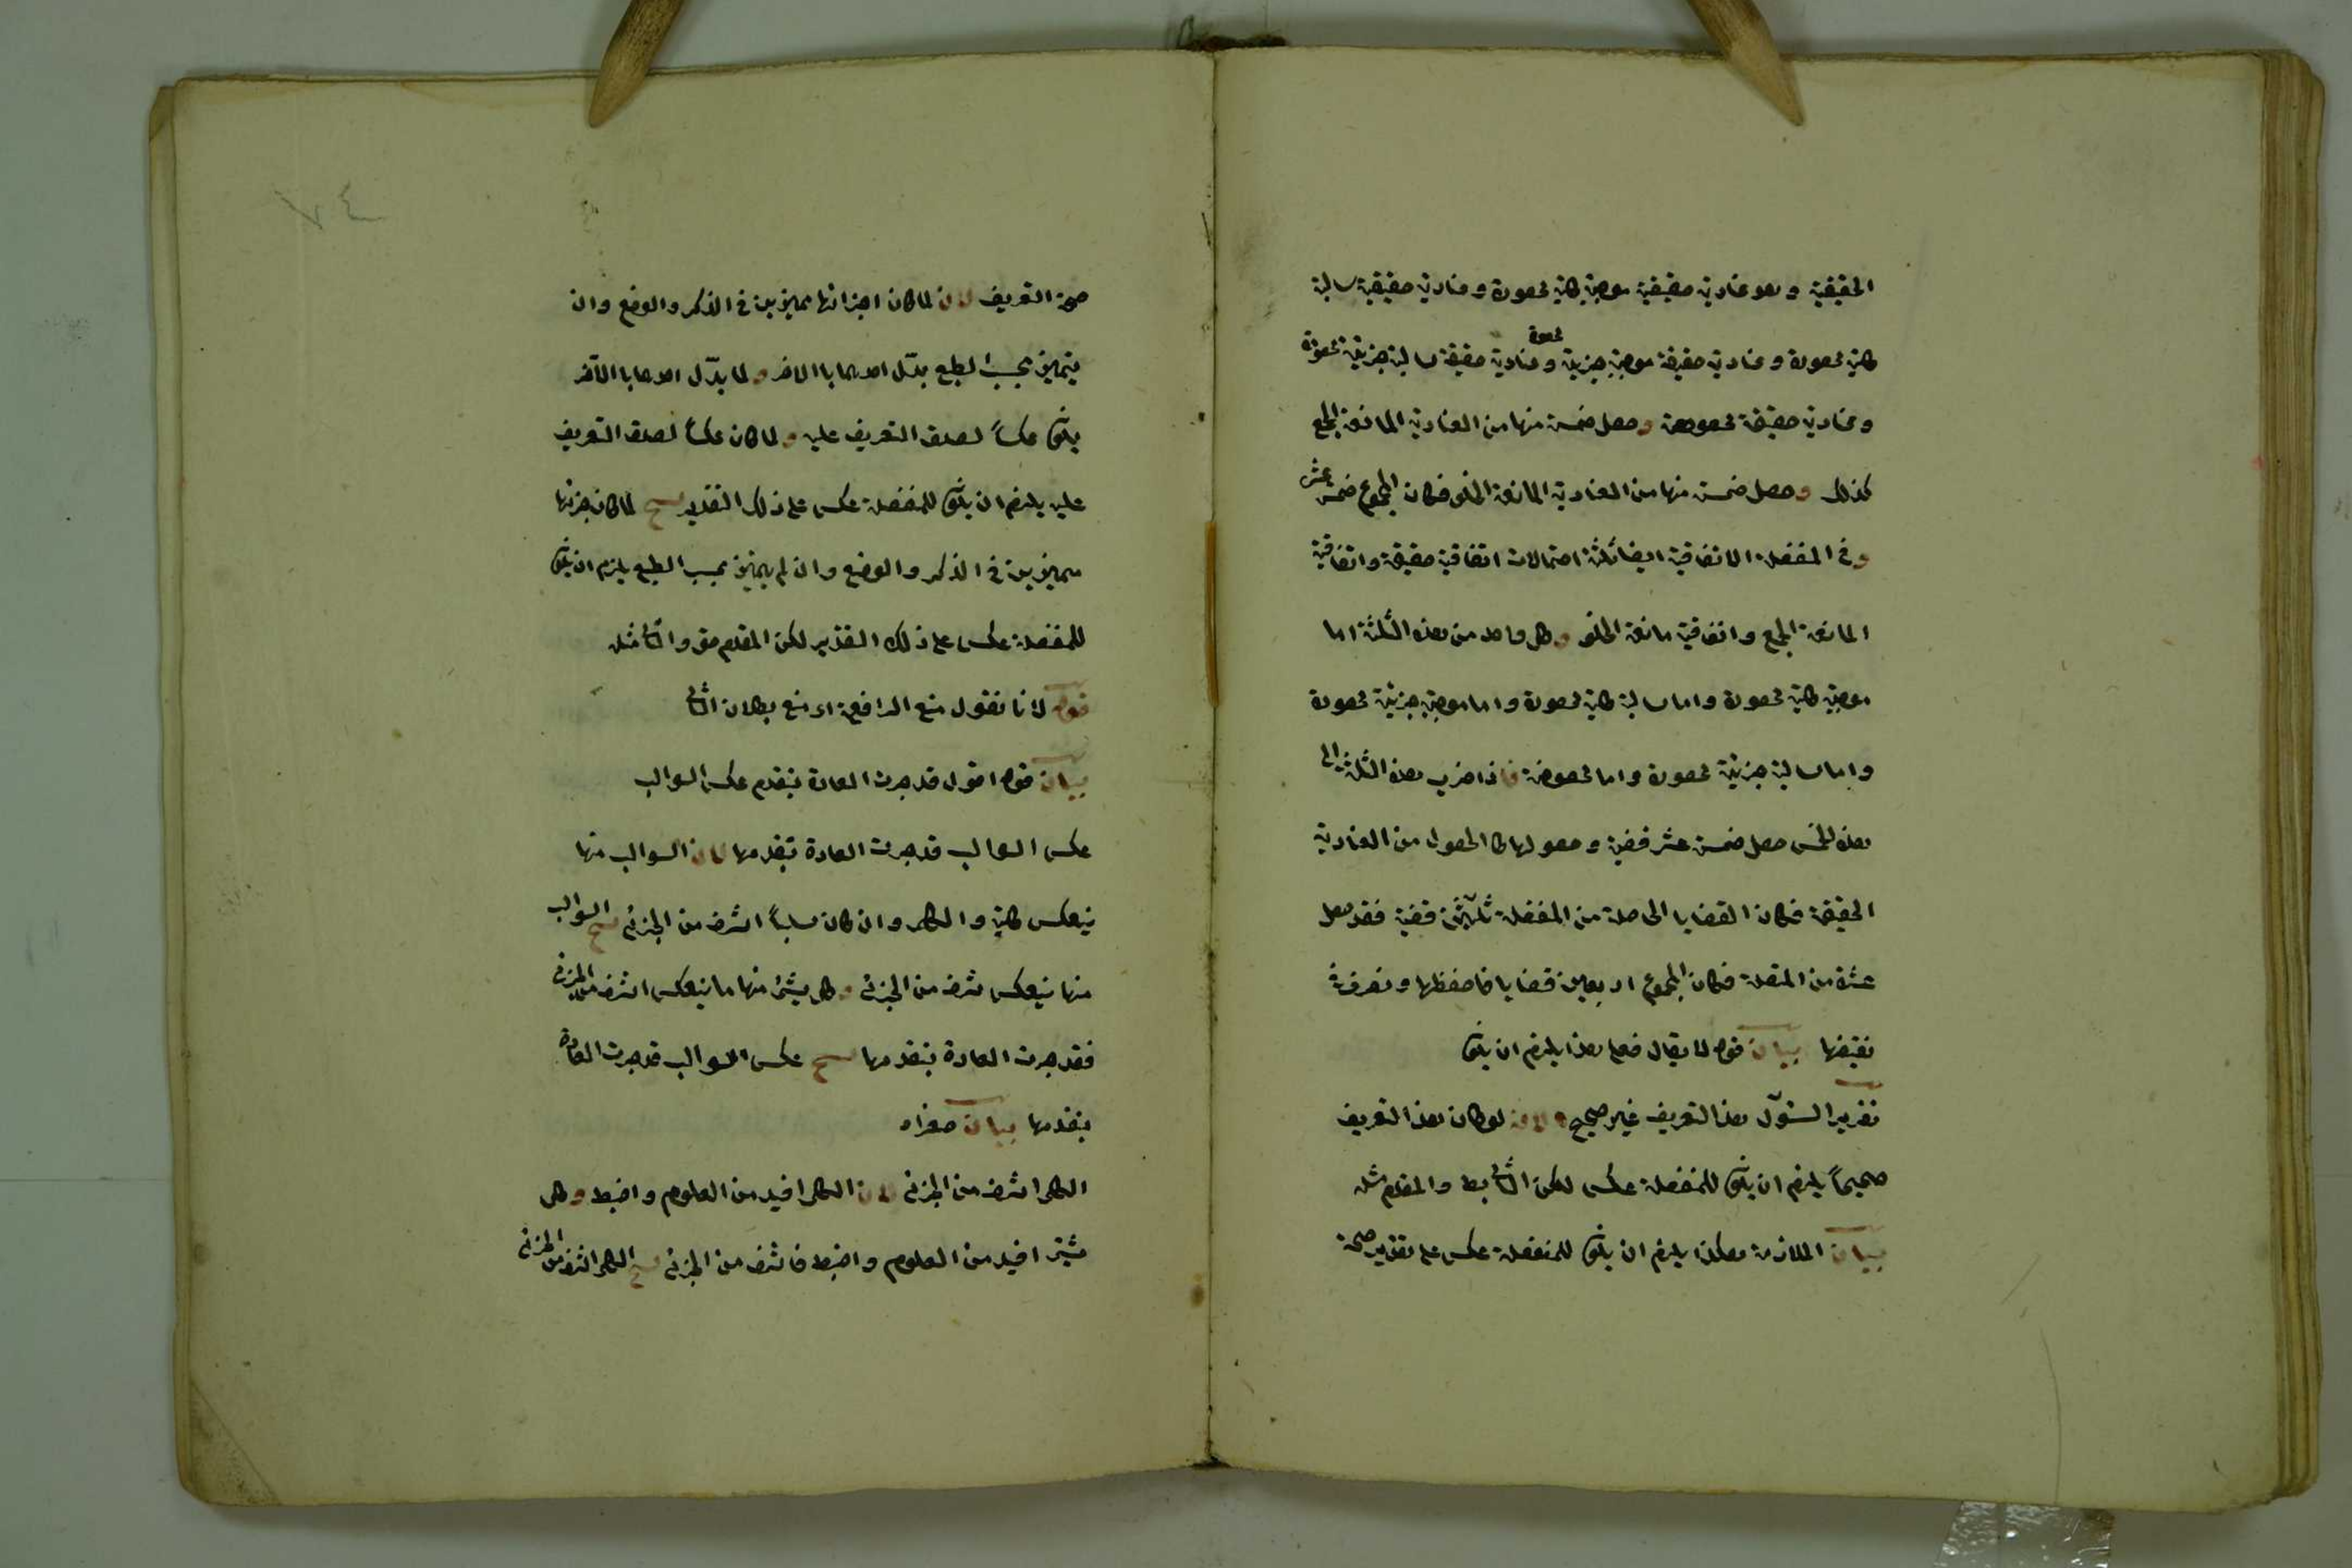 الحقيقية وهو عنادية حقيقية موجبة كلية محصورة وعنادية حقيقية سالبة
كلية محصورة وعنادية حقيقة موجبة جزئية محصورة وعنادية حقيقة سالبة جزئية محصورة
وعنادية حقيقة مخصوصة وحصل خمسة منها من العنادية المانعة الجمع
كذلك وحصل خمسة منها من العنادية المانعة الخلو فكان المجموع خمس عشر
وفى المنفصلة الاتفاقية ايضا ثلثة احتمالات اتفاقية حقيقة واتفاقية
المانعة الجمع واتفاقية مانعة الخلو وكل واحد من هذه الثلثة اما
موجبة كلية محصورة واما سالبة كلية محصورة واما موجبة جزئية محصورة
واما سالبة جزئية محصورة واما مخصوصة فاذا ضرب هذه الثلثة الى
هذه الخمس حصل خمسة عشر قضية وحصولها كالحصول من العنادية
الحقيقة فكان القضايا الحاصلة من المنفصلة ثلثين قضية فقد حصل
عشرة من المتصلة فكان المجموع اربعين قضايا فاحفظها وتعرف
نقيضها بيان قوله لا يقال فعلى هذا يلزم ان يكون
تقرير السئول هذا التعريف غير صحيح لانه لو كان هذا التعريف
صحيحاً يلزم ان يكون للمنفصلة عكس لكن التالى بط والمقدم مثله
بيان الملازمة هكذا يلزم ان يكون للمنفصلة عكس على تقدير صحة
صحة التعريف لان لما كان اجزائها مميزين فى الذكر والوضع وان
يتميز بحسب الطبع بدّل احدهما بالاخر ولما بدّل احدهما بالآخر
يكون عكساً لصدق التعريف عليه ولما كان عكساً لصدق التعريف
عليه يلزم ان يكون للمنفصلة عكس على ذلك التقدير ينتج لما كان جزئها
مميزين فى الذكر والوضع وان لم يتميز بحسب الطبع يلزم ان يكون
للمنفصلة عكس على ذلك التقدير لكن المقدم حق والتالى مثله
قوله لانا نقول منع الرافعة اى منع بطلان التالى
بيان قوله اقول قد جرت العادة بتقدم عكس السوالب
عكس السوالب قد جرت العادة بتقدمها لان السوالب منها
ينعكس كلية والكلى وان كان سلباً اشرف من الجزئى ينتج السوالب
منها ينعكس اشرف من الجزئى وكل شئ منها ما ينعكس اشرف من الجزئى
فقد جرت العادة بتقدمها ينتج عكس السوالب قد جرت العادة
بتقدمها بيان صغراه
الكلى اشرف من الجزئى لان الكلى افيد من العلوم واضبط وكل
شئ افيد من العلوم واضبط فاشرف من الجزئى ينتج الكلى اشرف من الجزئى
٧٤